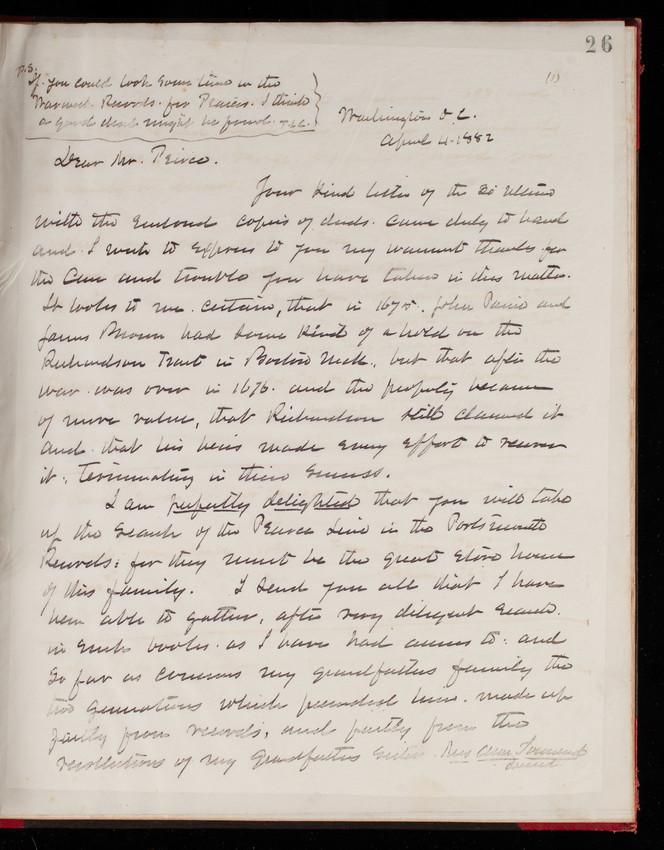 26
P.S. If you could look some time in the
Records for Peirces. I think
a good deal might be found. T.L.C.
(1)
Washington D.C.
April 4-1882
Dear Mr. Peirce.
Your kind letter of the
with the enclosed copies of deeds. came duly to hand
and I write to express to you my warmest thanks for
the care and trouble you have taken in this matter.
It looks to me certain, that in 1675. John and
James Brown had some kind of a hold on the
Richardson Tract in Boston Neck, but that after the
war was over in 1676. and the property became
of more value, that Richardson still claimed it
and that his heirs made every effort to recover
it, terminating in their success.
I am perfectly delighted that you will take
up the search of the Peirce Line in the Portsmouth
Records: for they must be the great store house
of this family. I send you all that I have
been able to gather, after very diligent search
in such books as I have had access to: and
so far as concerns my grandfathers family the
two generations which preceded him. made up
partly from records, and partly from the
recollections of my Grandfathers Sister Mrs